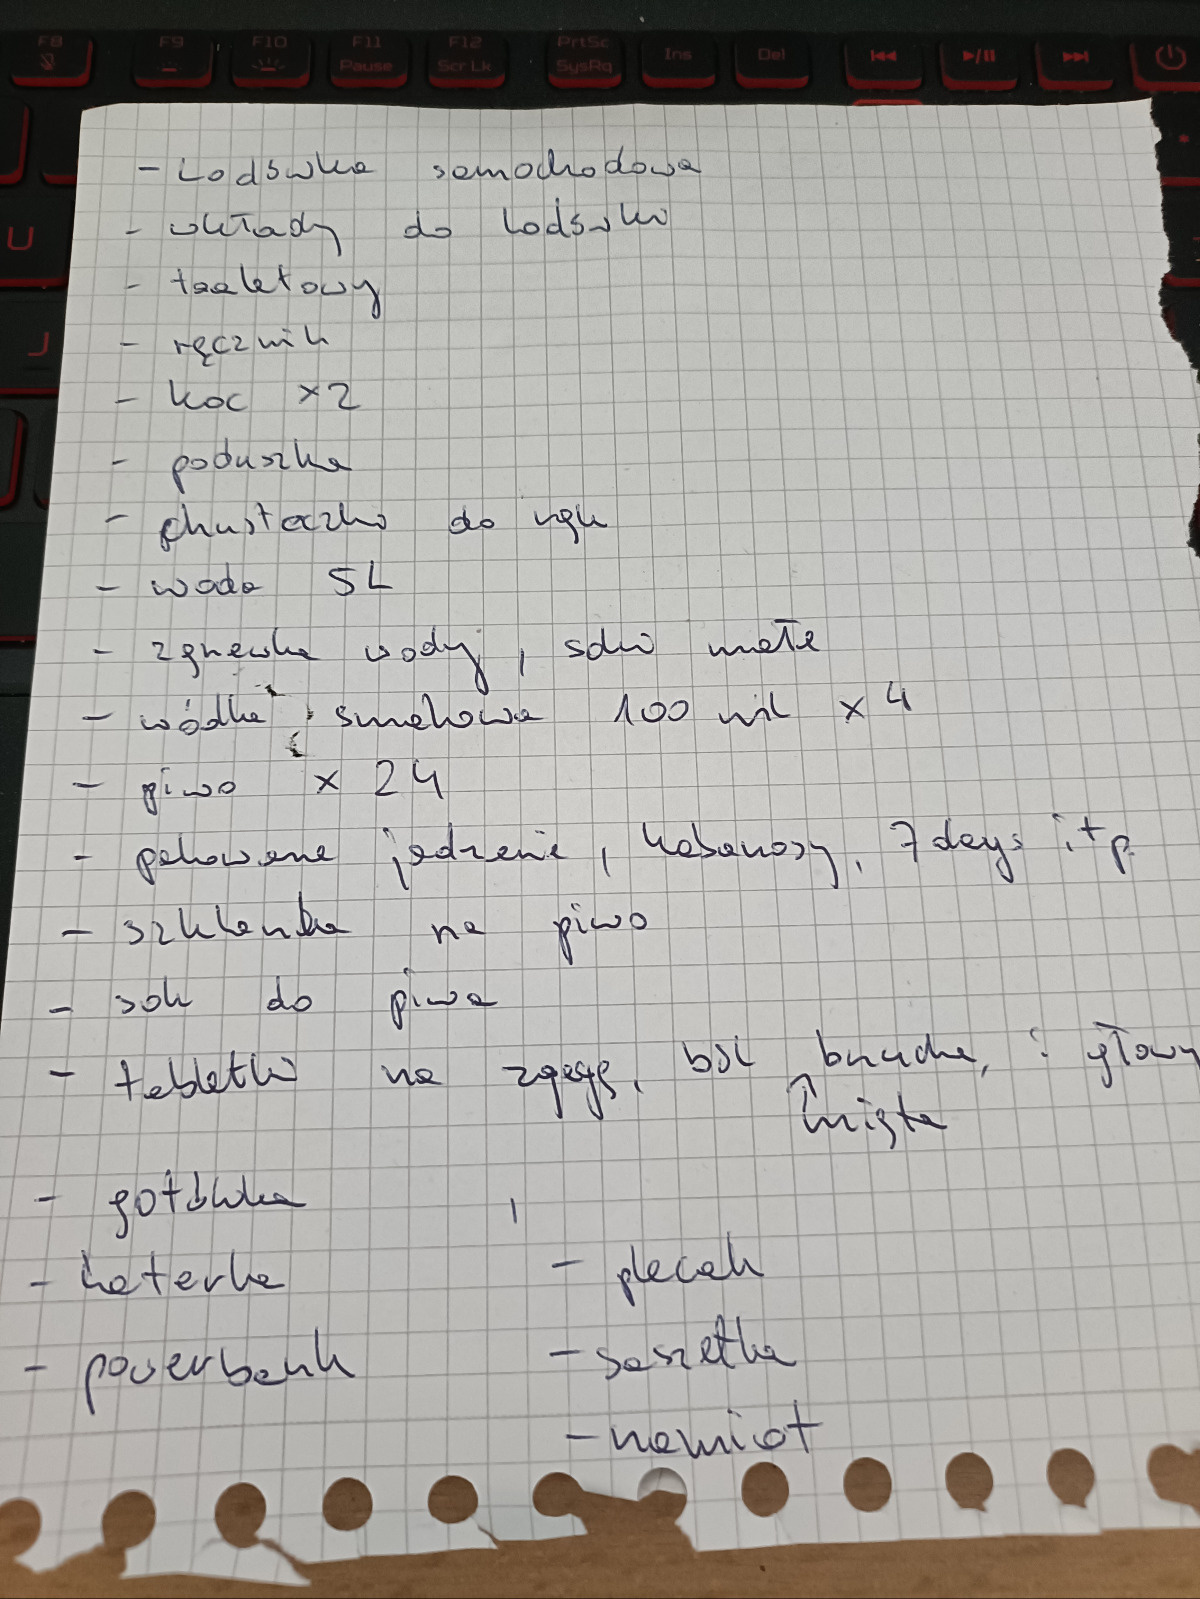 F8 F9 F10 F11 F12 PrtSc Ins Del
Pause Scr Lk SysRq
U
J
- Lodówka samochodowa
- wkłady do lodówki
- toaletowy
- ręcznik
- koc x2
- poduszka
- chusteczki do rąk
- woda 5L
- zgrzewka wody, soki małe
- wódka, smakowa 100 ml x 4
- piwo x 24
- pakowane jedzenie, kabanosy, 7days itp.
- szklanka na piwo
- sok do piwa
- tabletki na zgagę, ból brzucha, i głowy
mięta
- gotówka
- laterka
- powerbank
- plecak
- saszetka
- namiot